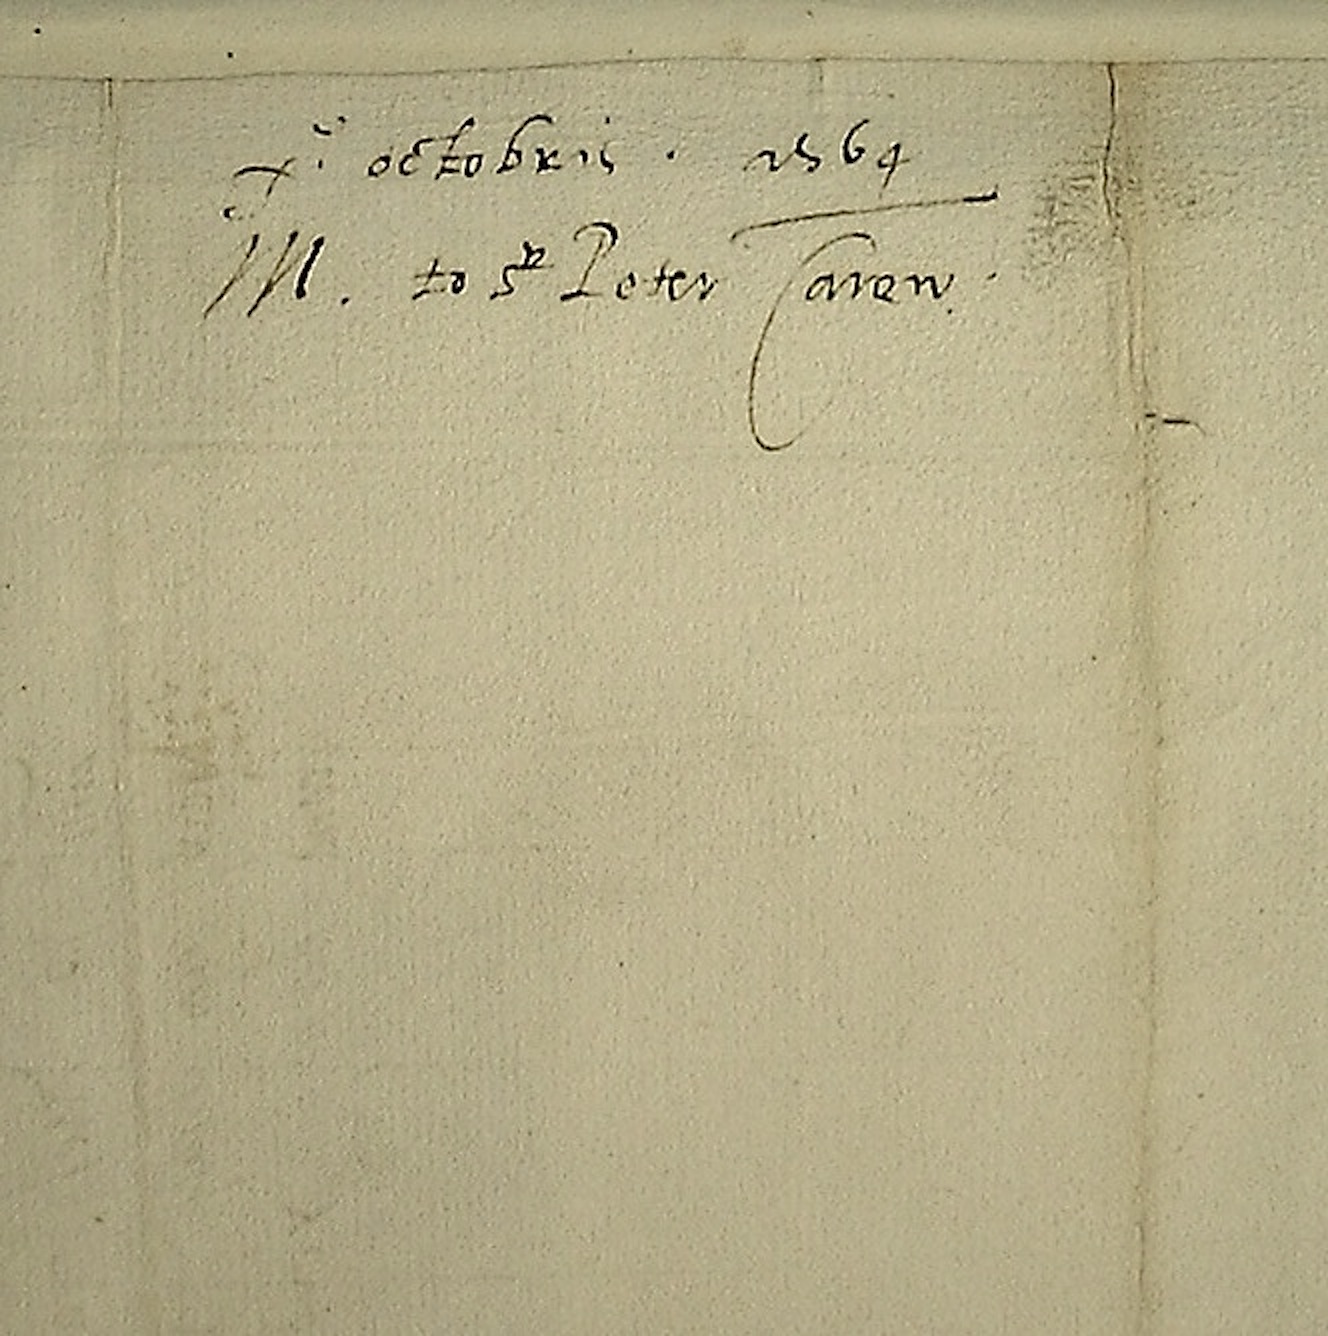 x° octobris . 1564
M. to Sr Peter Carew.